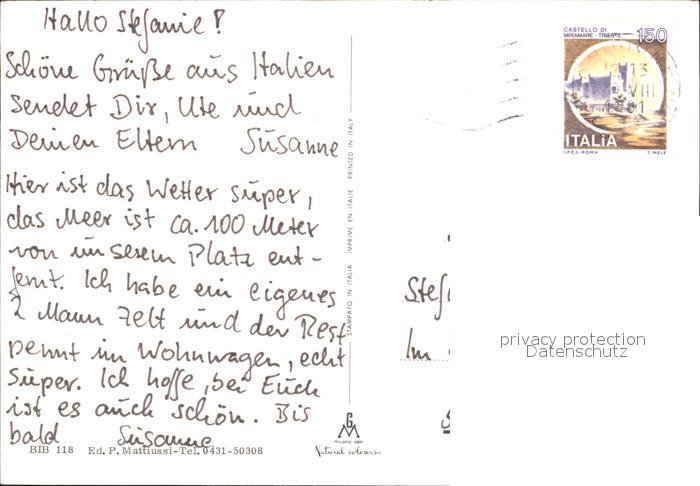 Hallo Stefanie!
Schöne Grüße aus Italien
sendet Dir, Ute und
Deinen Eltern Susanne
Hier ist das Wetter super,
das Meer ist ca. 100 Meter
von unserem Platz ent-
fernt. Ich habe ein eigenes
2 Mann Zelt und der Rest
pennt im Wohnwagen, echt
super. Ich hoffe, bei Euch
ist es auch schön. Bis
bald Susanne
BIB 118 Ed. P. Mattiussi-Tel. 0431-50308
STAMPATO IN ITALIA IMPRIMÉ EN ITALIE PRINTED IN ITALY
GM
MILANO
Natural colours
CASTELLO DI
MIRAMARE - TRIESTE 150
13
VIII
ITALIA
I.P.Z.S.-ROMA T. MELE
Stef
Im
privacy protection
Datenschutz